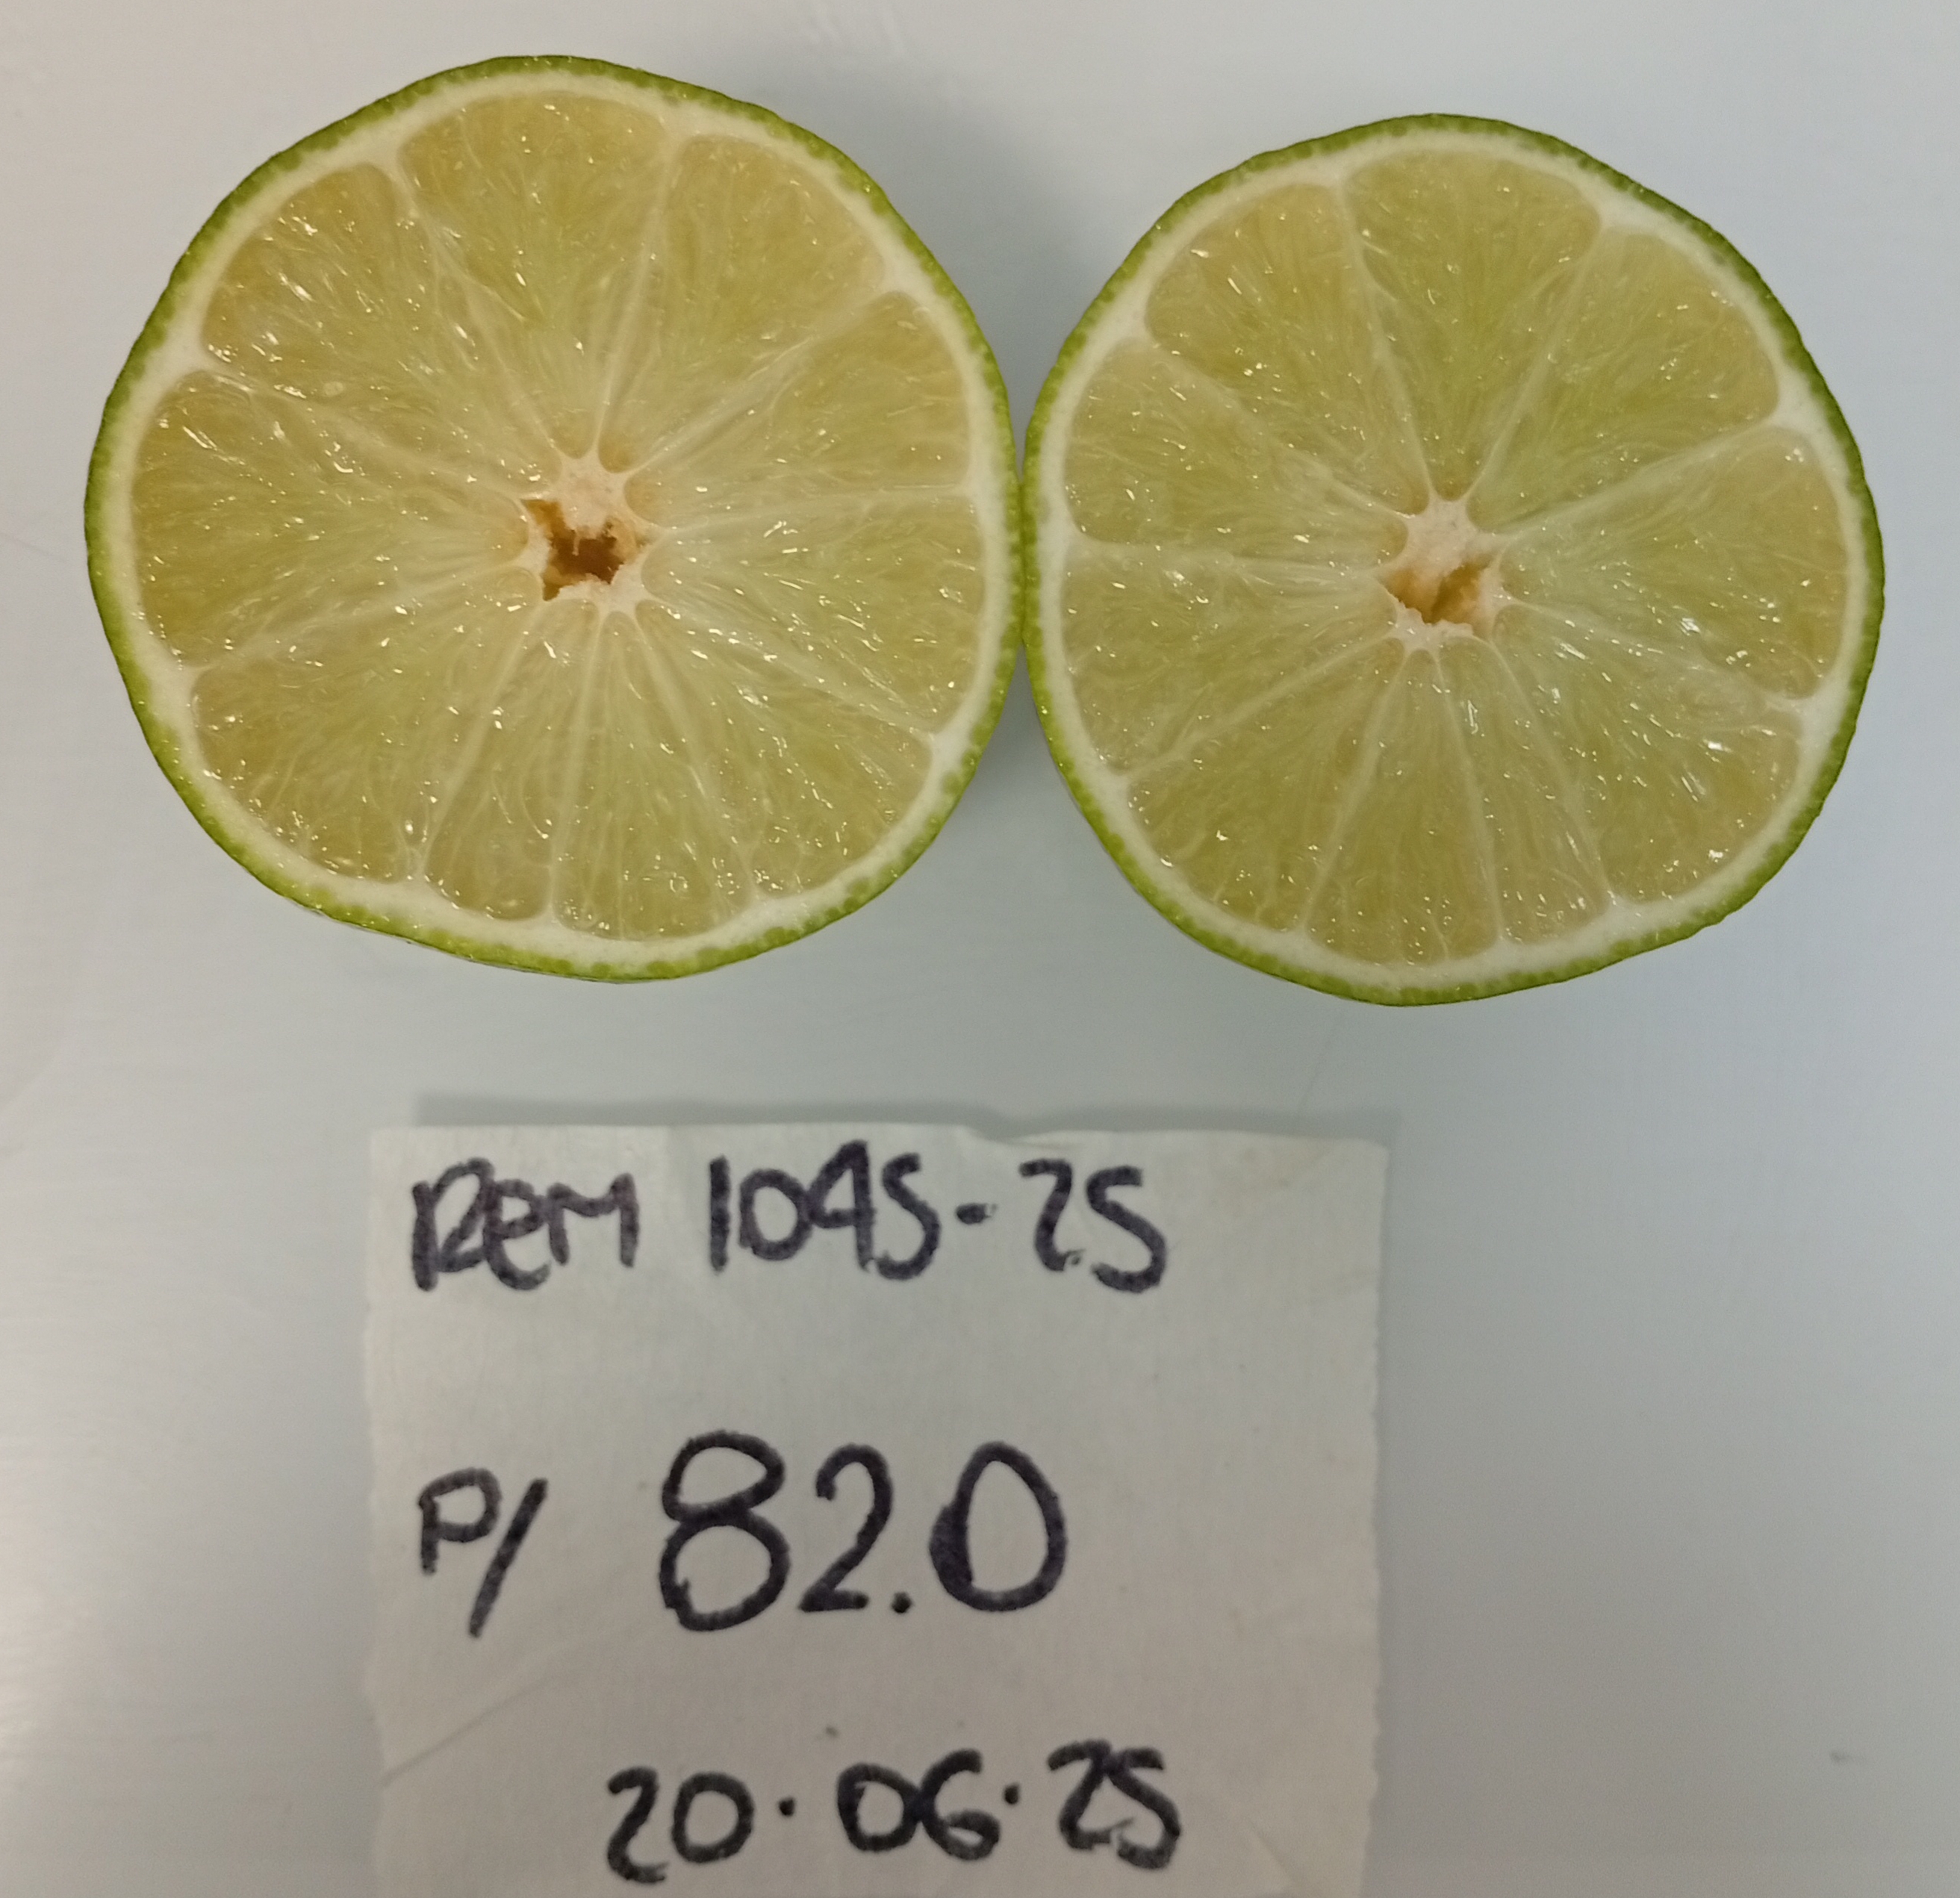 REM 1045-25
P/ 82.0
20.06.25